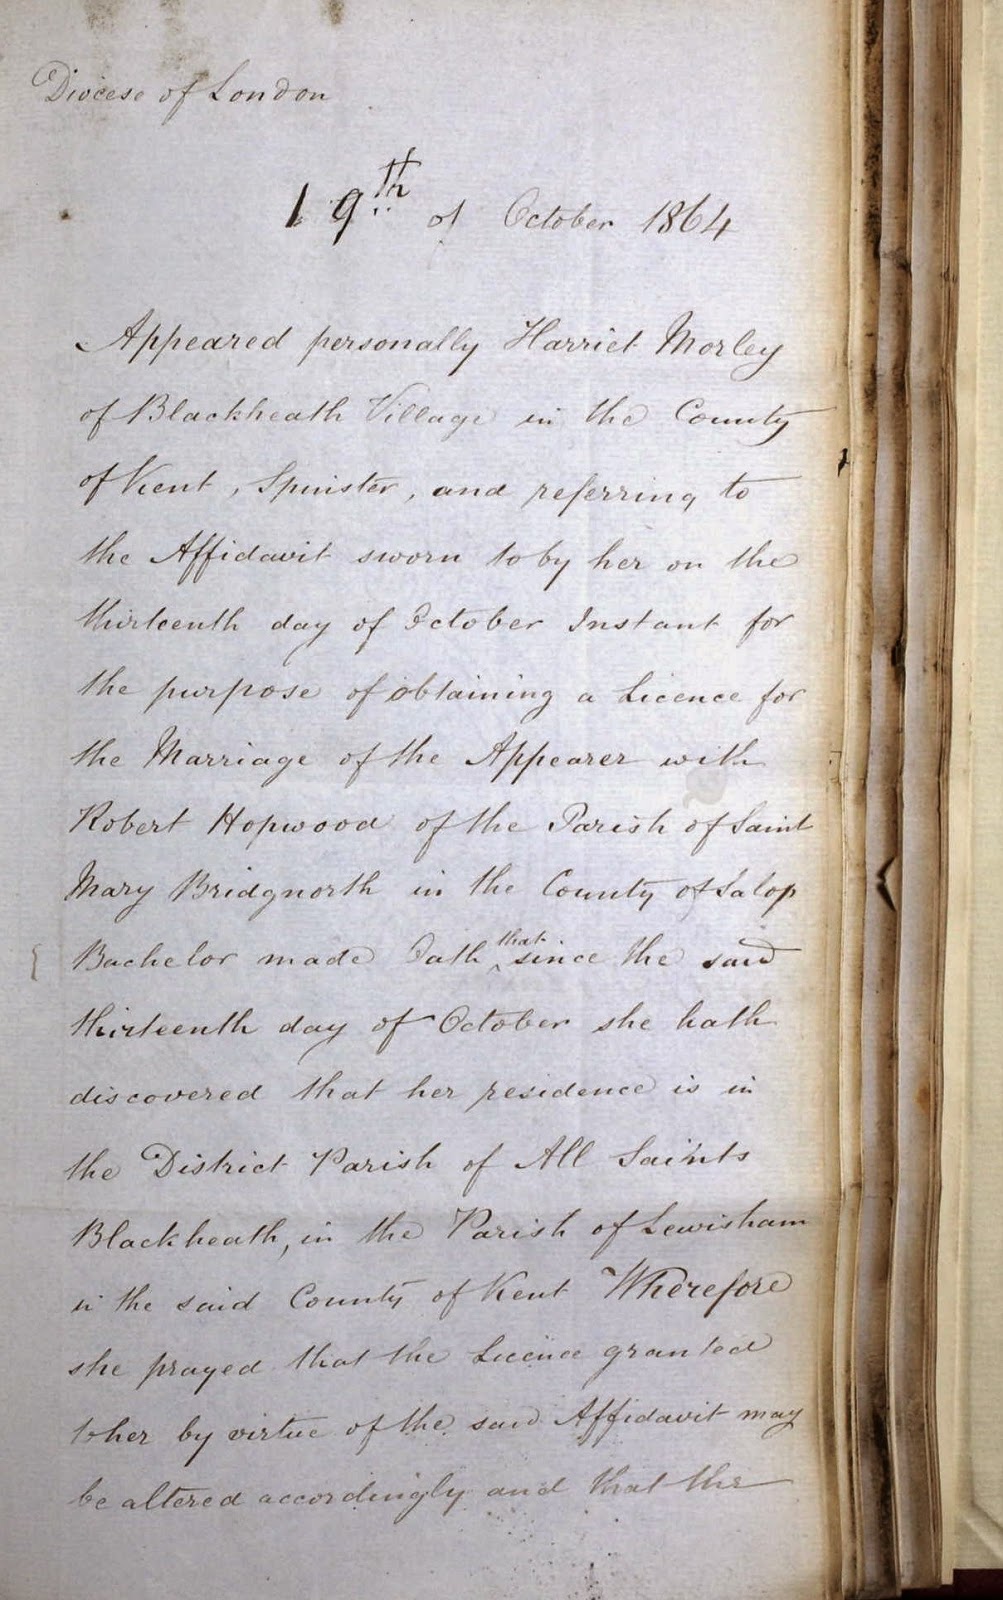 Diocese of London
19th of October 1864
Appeared personally Harriet Morley
of Blackheath Village in the County
of Kent, Spinster, and referring to
the Affidavit sworn to by her on the
thirteenth day of October Instant for
the purpose of obtaining a Licence for
the Marriage of the Appearer with
Robert Hopwood of the Parish of Saint
Mary Bridgnorth in the County of Salop
Bachelor made Oath that since the said
thirteenth day of October she hath
discovered that her residence is in
the District Parish of All Saints
Blackheath, in the Parish of Lewisham
in the said County of Kent Wherefore
she prayed that the Licence granted
to her by virtue of the said Affidavit may
be altered accordingly and that the